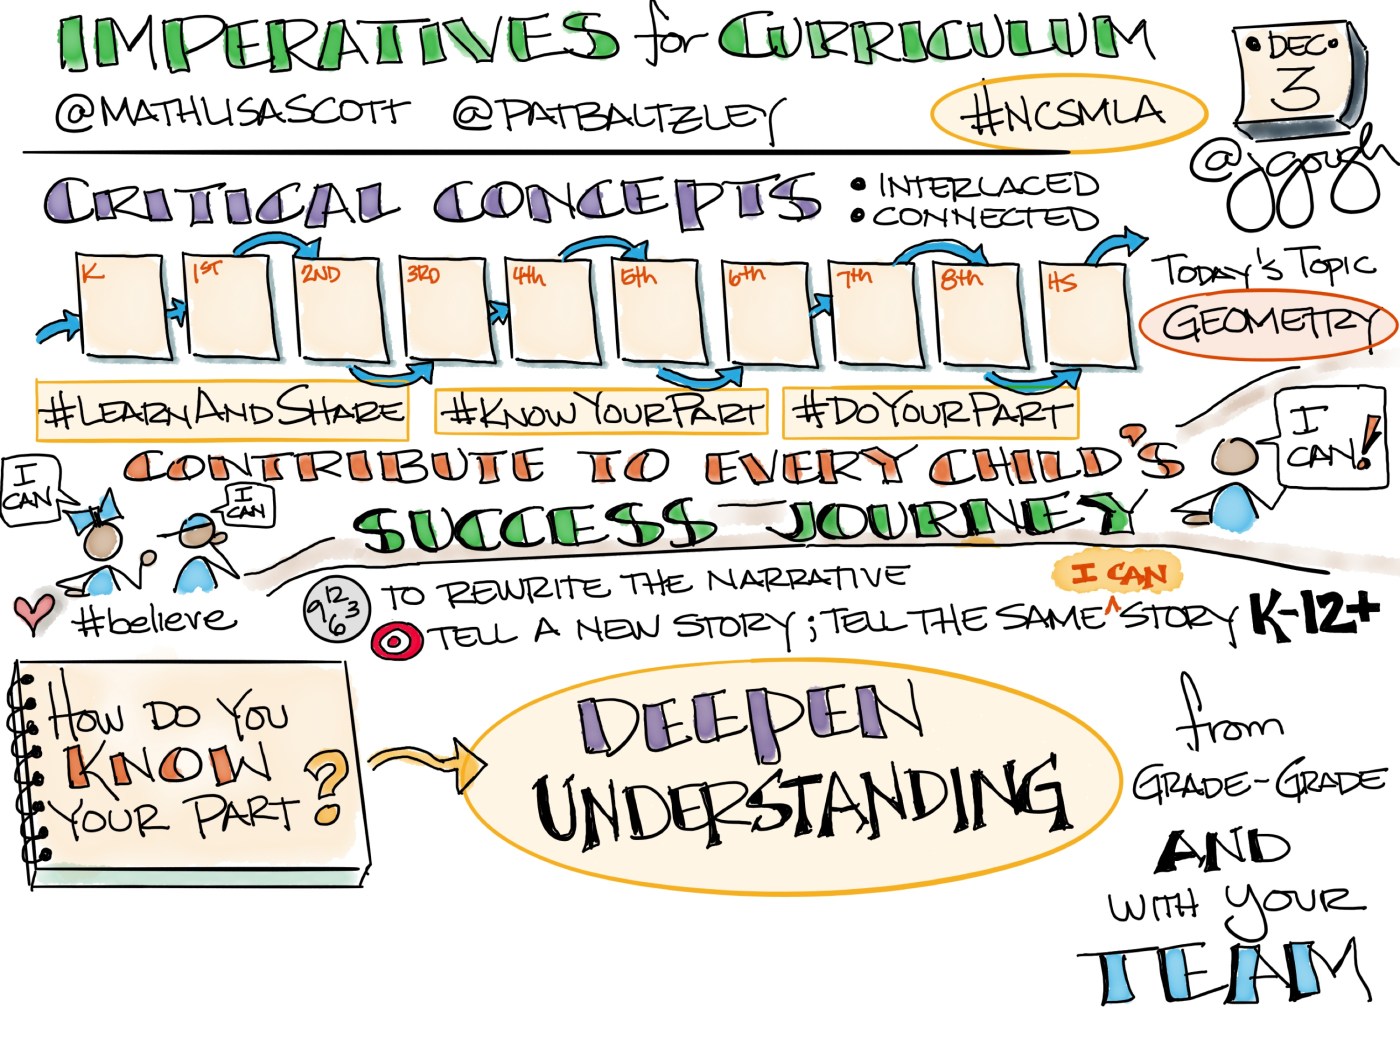 IMPERATIVES for CURRICULUM
@MATHLISASCOTT @PATBALTZLEY #NCSMLA
DEC
3
@jgough
CRITICAL CONCEPTS
• INTERLACED
• CONNECTED
K 1ST 2ND 3RD 4th 5th 6th 7th 8th HS
TODAY'S TOPIC
GEOMETRY
#LEARNANDSHARE #KNOWYOURPART #DOYOURPART
CONTRIBUTE TO EVERY CHILD'S
SUCCESS JOURNEY
I
CAN
I
CAN
I
CAN!
#believe
12
9 3
6
TO REWRITE THE NARRATIVE
I CAN
TELL A NEW STORY; TELL THE SAME ^ STORY K-12+
HOW DO YOU
KNOW
YOUR PART?
DEEPEN
UNDERSTANDING
from
GRADE-GRADE
AND
WITH YOUR
TEAM